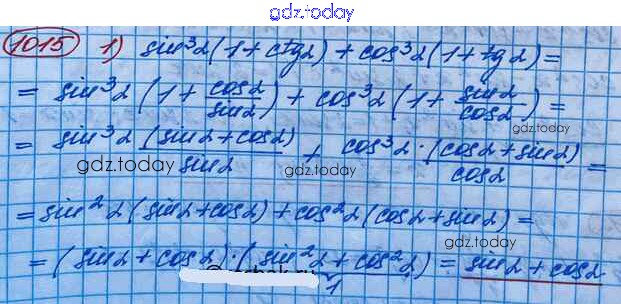 gdz.today
1015 1) sin³α(1+ctgα)+cos³α(1+tgα)=
= sin³α (1+ cosα/sinα) + cos³α (1+ sinα/cosα) =
gdz.today
= sin³α (sinα+cosα)/sinα + cos³α·(cosα+sinα)/cosα =
gdz.today
gdz.today
= sin²α (sinα+cosα)+cos²α(cosα+sinα) =
gdz.today
= (sinα+cosα)·(sin²α+cos²α) = sinα+cosα
1